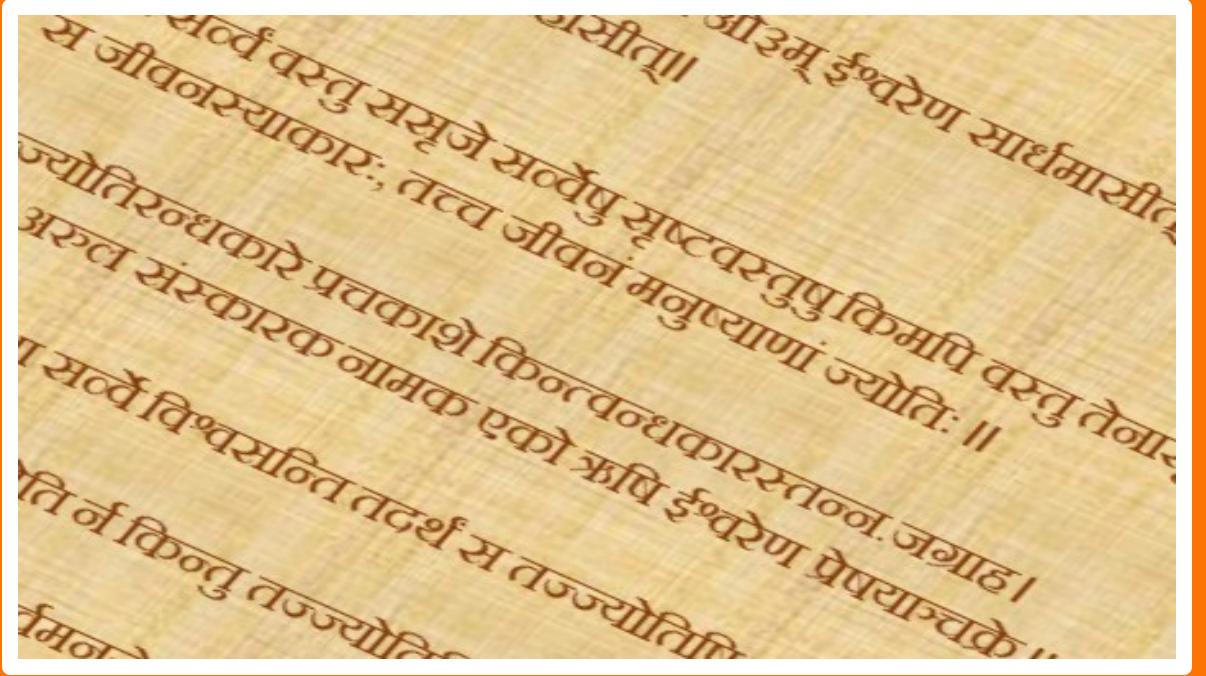 ओ३म् ईश्वरेण सार्धमासीत्
सर्व्वं वस्तु ससृजे सर्व्वेषु सृष्टवस्तुषु किमपि वस्तु
स जीवनस्याकारः, तच्च जीवनं मनुष्याणां ज्योतिः ॥
ज्योतिरन्धकारे प्रचकाशे किन्त्वन्धकारस्तन्न.जग्राह।
अरुल संस्कारक नामक एको ऋषि ईश्वरेण प्रेषयाञ्चक्रे॥
सर्व्वे विश्वसन्ति तदर्थं स तज्ज्योतिषि
र्न किन्तु